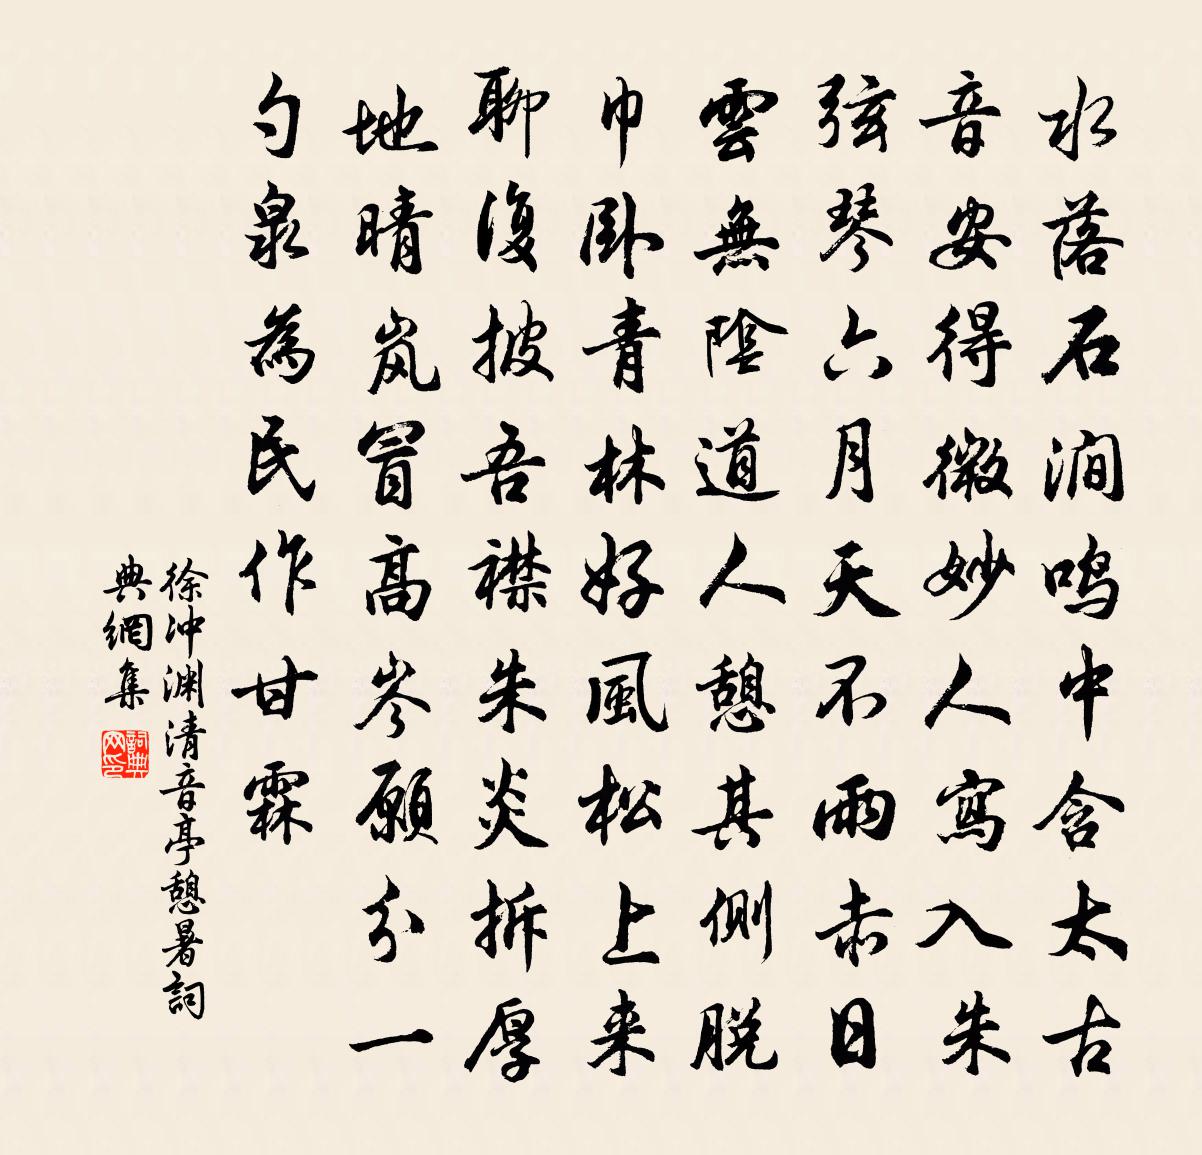 水落石澗鳴中含太古
音安得微妙人寫入朱
弦琴六月天不雨赤日
雲無陰道人憩其側脫
巾卧青林好風松上来
聊復披吾襟朱炎拆厚
地晴岚冒高岑願分一
勺泉為民作甘霖
徐沖渊清音亭憩暑詞
典網集
詞典网印